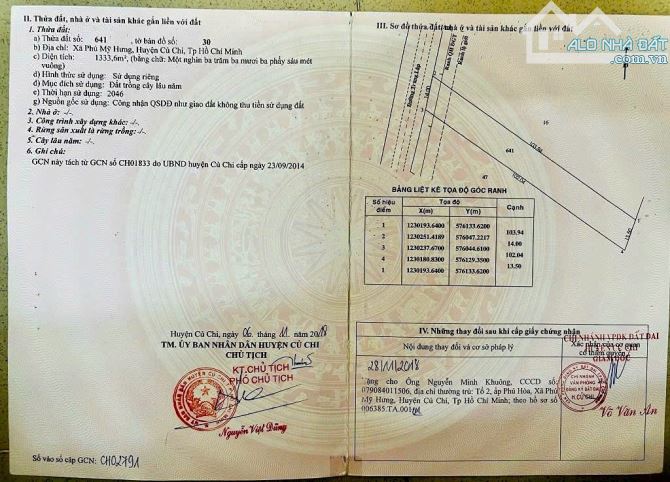 II. Thửa đất, nhà ở và tài sản khác gắn liền với đất
1. Thửa đất:
a) Thửa đất số: 641 , tờ bản đồ số: 30
b) Địa chỉ: Xã Phú Mỹ Hưng, Huyện Củ Chi, Tp Hồ Chí Minh
c) Diện tích: 1333,6m², (bằng chữ: Một nghìn ba trăm ba mươi ba phẩy sáu mét
vuông)
d) Hình thức sử dụng: Sử dụng riêng
đ) Mục đích sử dụng: Đất trồng cây lâu năm
e) Thời hạn sử dụng: 2046
g) Nguồn gốc sử dụng: Công nhận QSDĐ như giao đất không thu tiền sử dụng đất
2. Nhà ở: -/-
3. Công trình xây dựng khác: -/-
4. Rừng sản xuất là rừng trồng: -/-
5. Cây lâu năm: -/-
6. Ghi chú:
GCN này tách từ GCN số CH01833 do UBND huyện Củ Chi cấp ngày 23/09/2014
Huyện Củ Chi, ngày 06 tháng 11 năm 2018
TM. ỦY BAN NHÂN DÂN HUYỆN CỦ CHI
CHỦ TỊCH
KT.CHỦ TỊCH
PHÓ CHỦ TỊCH
Nguyễn Việt Dũng
Số vào sổ cấp GCN: CH02791
III. Sơ đồ thửa đất, nhà ở và tài sản khác gắn liền với đất
ALO NHÀ ĐẤT
16
14.00
103.94
641
102.04
47
13.50
BẢNG LIỆT KÊ TỌA ĐỘ GÓC RANH
Số hiệu điểm Tọa độ Cạnh
X(m) Y(m)
1 1230193.6400 576133.6200
103.94
2 1230251.4189 576047.2217
14.00
3 1230237.6700 576044.6100
102.04
4 1230180.8300 576129.3500
13.50
1 1230193.6400 576133.6200
IV. Những thay đổi sau khi cấp giấy chứng nhận
Nội dung thay đổi và cơ sở pháp lý
Xác nhận của cơ quan
có thẩm quyền
CHI NHÁNH VPĐK ĐẤT ĐAI
HUYỆN CỦ CHI
GIÁM ĐỐC
28/11/2018
Tặng cho Ông Nguyễn Minh Khuông, CCCD số:
079084011506, địa chỉ thường trú: Tổ 2, ấp Phú Hòa, Xã Phú
Mỹ Hưng, Huyện Củ Chi, Tp Hồ Chí Minh; theo hồ sơ số
006385.TA.001
CHI NHÁNH
VĂN PHÒNG
ĐĂNG KÝ ĐẤT ĐAI
H.CỦ CHI
Võ Văn An